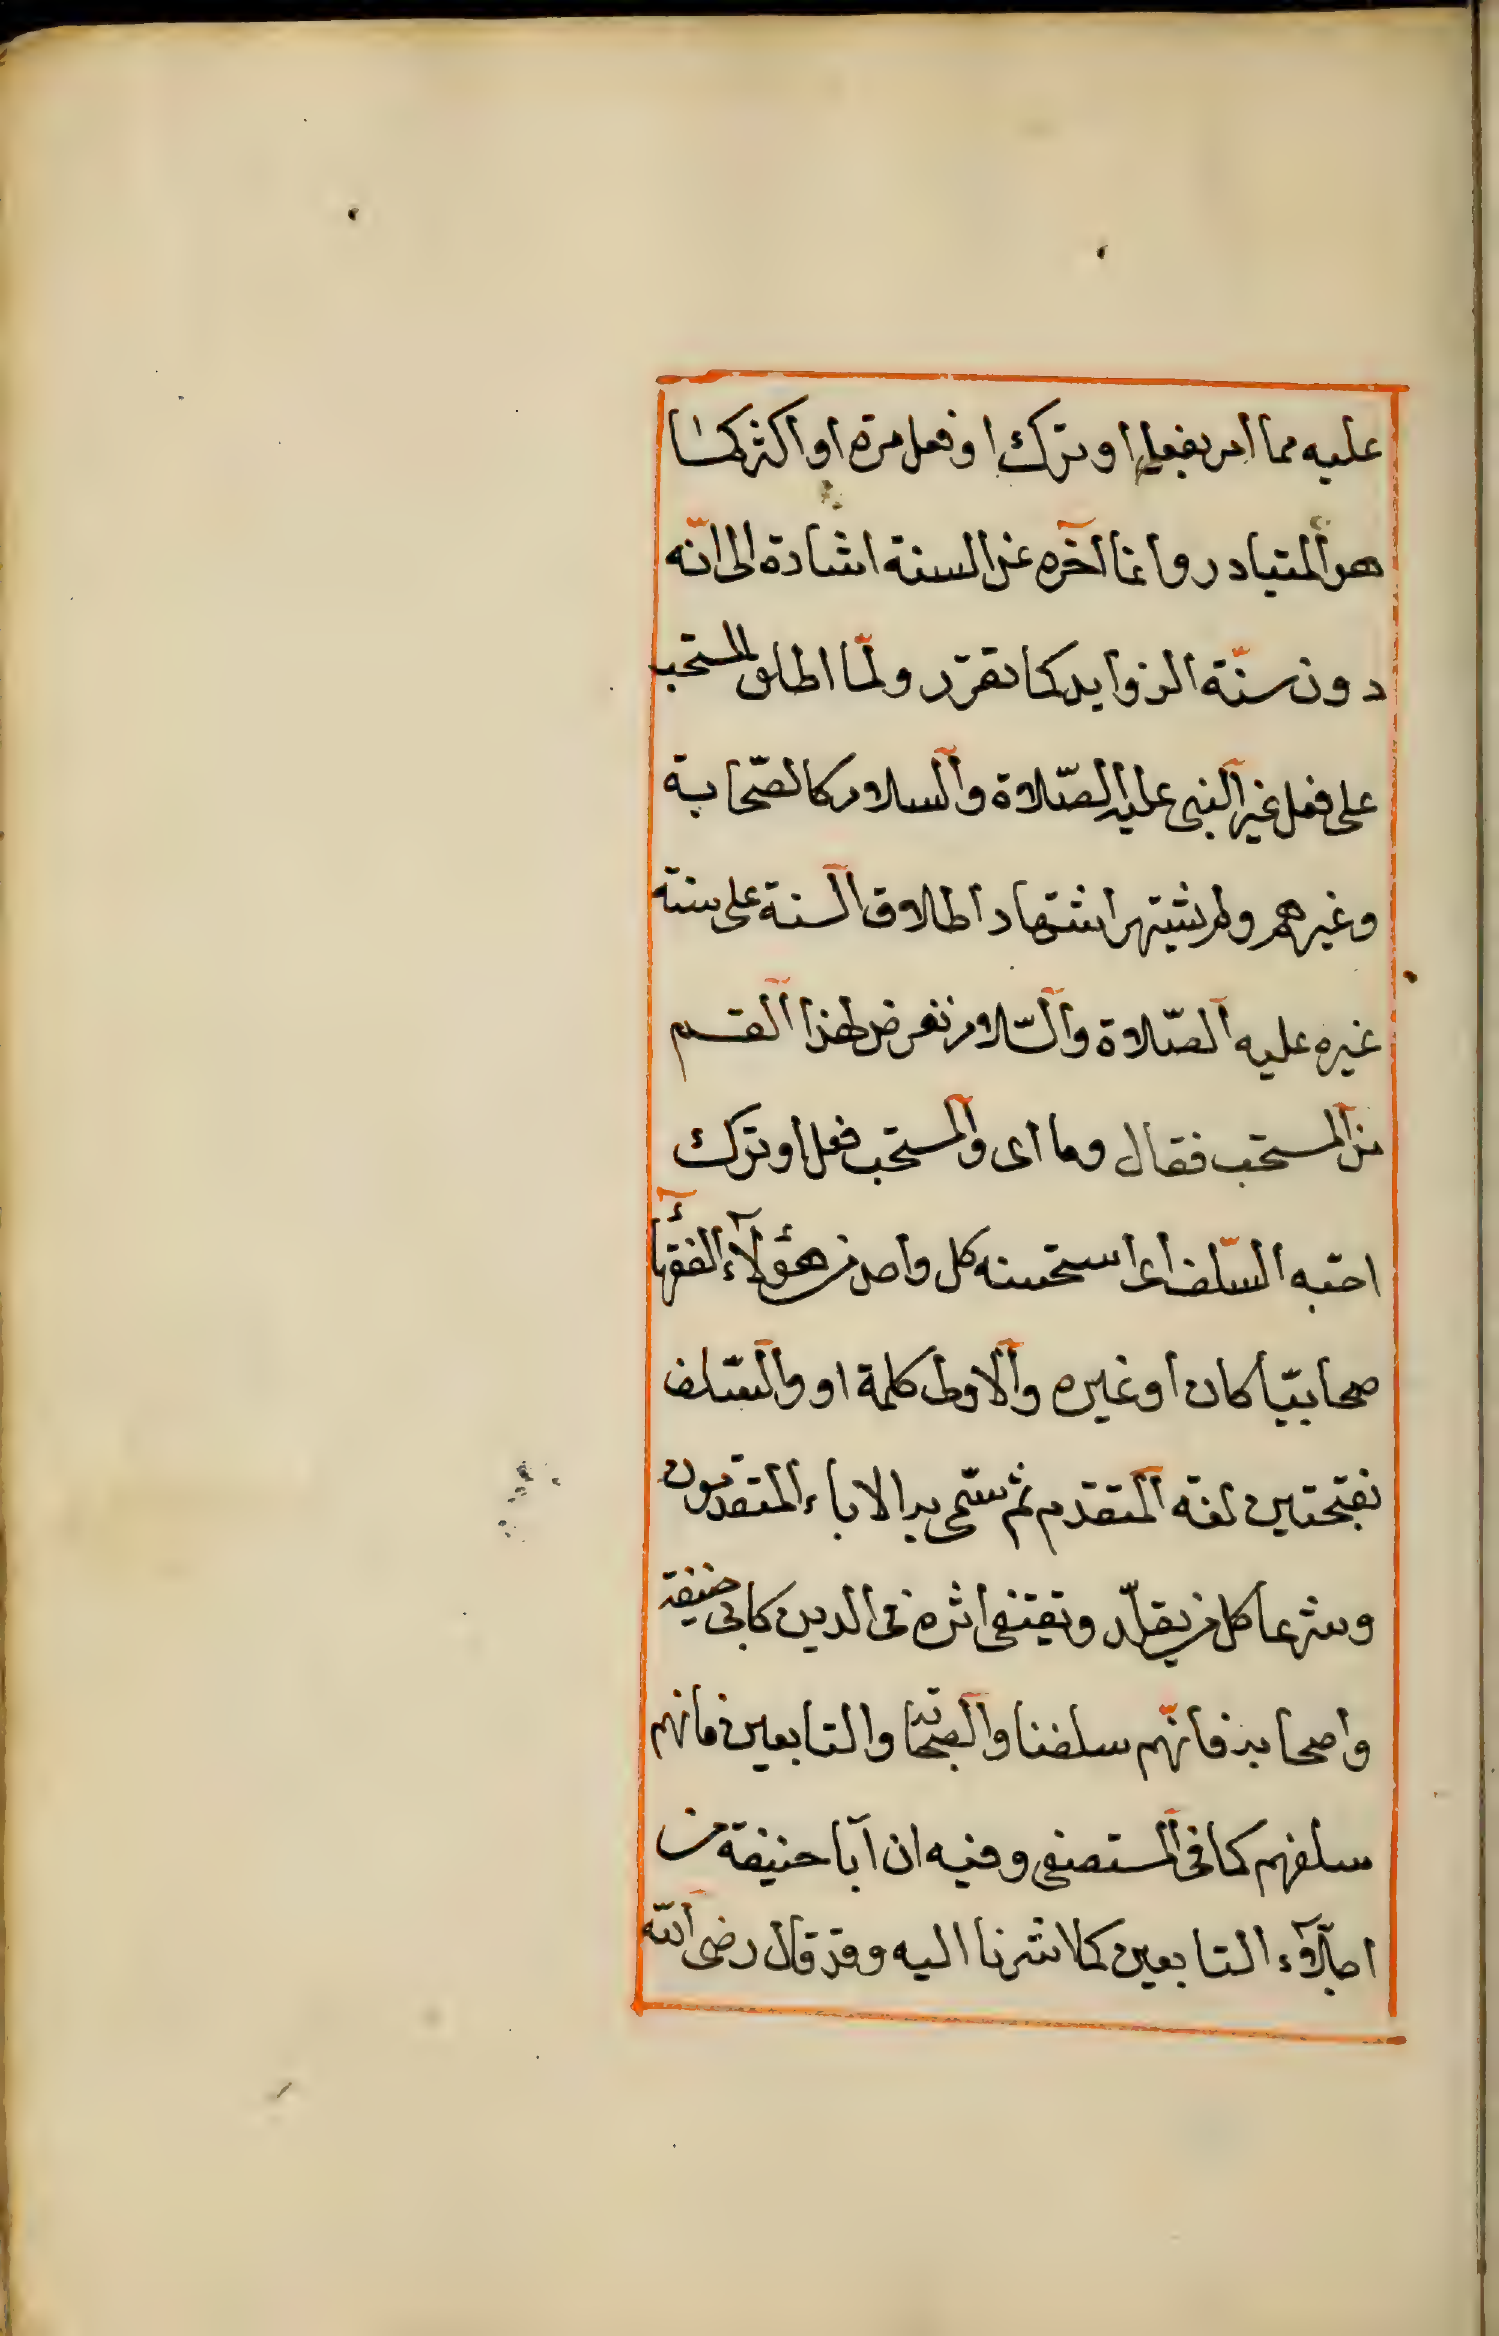 عليه مما امر بفعله او ترك او فعل مرة او اكثر كما
هو المتبادر وانما اخره عن السنة اشارة الى انّه
دون سنّة الزوايد كما تقرّر ولمّا اطلق المستحب
على فعل غير النبى عليه الصّلاة والسلام كالصّحابة
وغيرهم ولم يشتهر اشتهار اطلاق السنة على سنة
غيره عليه الصّلاة والسّلام تعرض لهذا القسم
من المستحب فقال وما اى والمستحب فعل او ترك
احبّه السّلف اى استحسنه كل واحد من هؤلآء الفقهآء
صحابيّا كان او غيره والاولى كلمة او والسّلف
بفتحتين لغة المتقدم ثم سمّى به الاباء المتقدمون
وشرعا كل من يقلّد ويقتفى اثره فى الدين كابى حنيفة
واصحابه فانّهم سلفنا والصّحابة والتابعين فانهم
سلفهم كما فى المستصفى وفيه ان ابا حنيفة من
اجلّاء التابعين كما اشرنا اليه وقد قال رضى الله